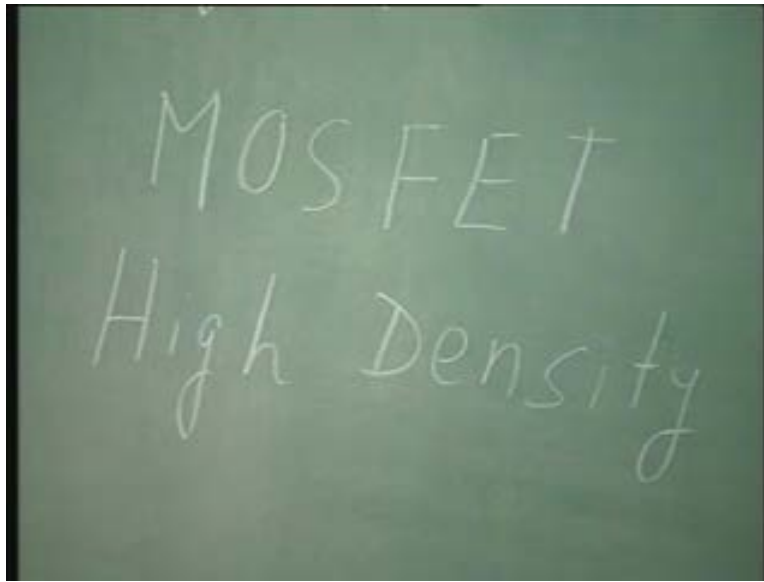 MOSFET
High Density